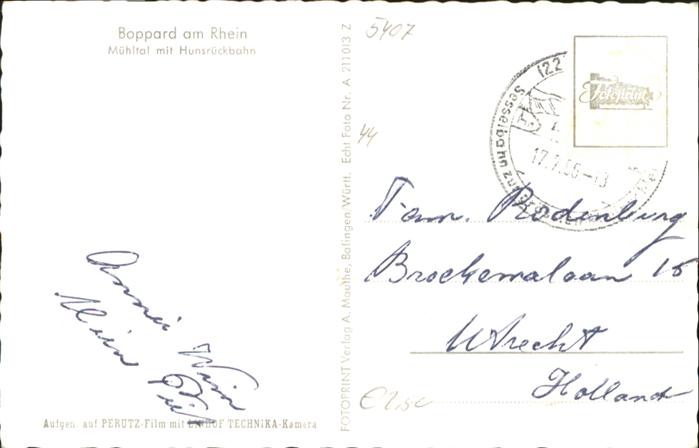 Boppard am Rhein
Mühltal mit Hunsrückbahn
5407
44
FOTOPRINT Verlag A. Mauthe, Balingen Württ. Echt Foto Nr. A 211013 Z
Fotoprint
(22
Sesselbahn
17.7.56-18
Fam. Rodenburg
Brockemalaan 15
Utrecht
Holland
Annie Wim
Wim Piet
Aufgen. auf PERUTZ-Film mit LINHOF TECHNIKA-Kamera